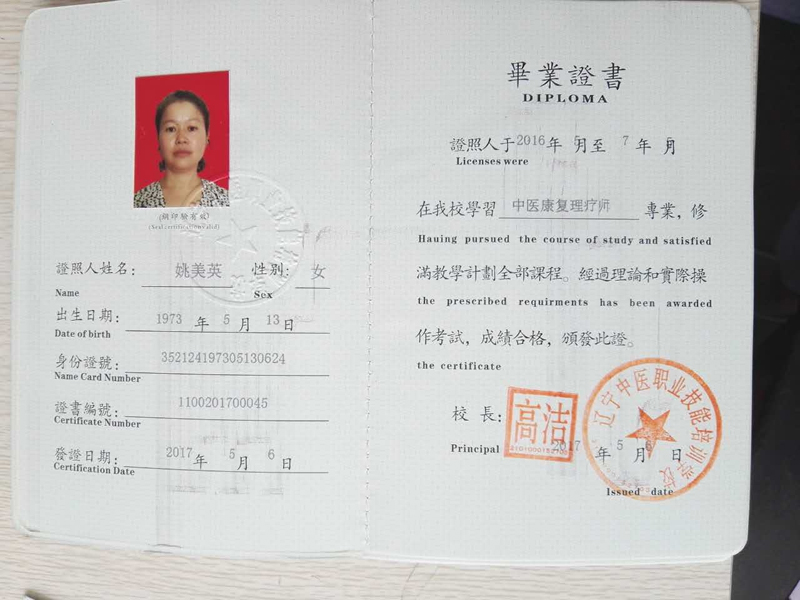 (鋼印驗有效)
(Seal certification valid)
證照人姓名: 姚美英 性别: 女
Name Sex
出生日期: 1973 年 5 月 13 日
Date of birth
身份證號: 352124197305130624
Name Card Number
證書編號: 1100201700045
Certificate Number
發證日期: 2017 年 5 月 6 日
Certification Date
畢業證書
DIPLOMA
證照人于 2016 年 5 月至 7 年 月
Licenses were
在我校學習 中医康复理疗师 專業，修
Hauing pursued the course of study and satisfied
滿教學計劃全部課程。經過理論和實際操
the prescribed requirments has been awarded
作考試，成績合格，頒發此證。
the certificate
校長: 高洁
Principal 2017 年 5 月 6 日
Issued date
辽宁中医职业技能培训学校